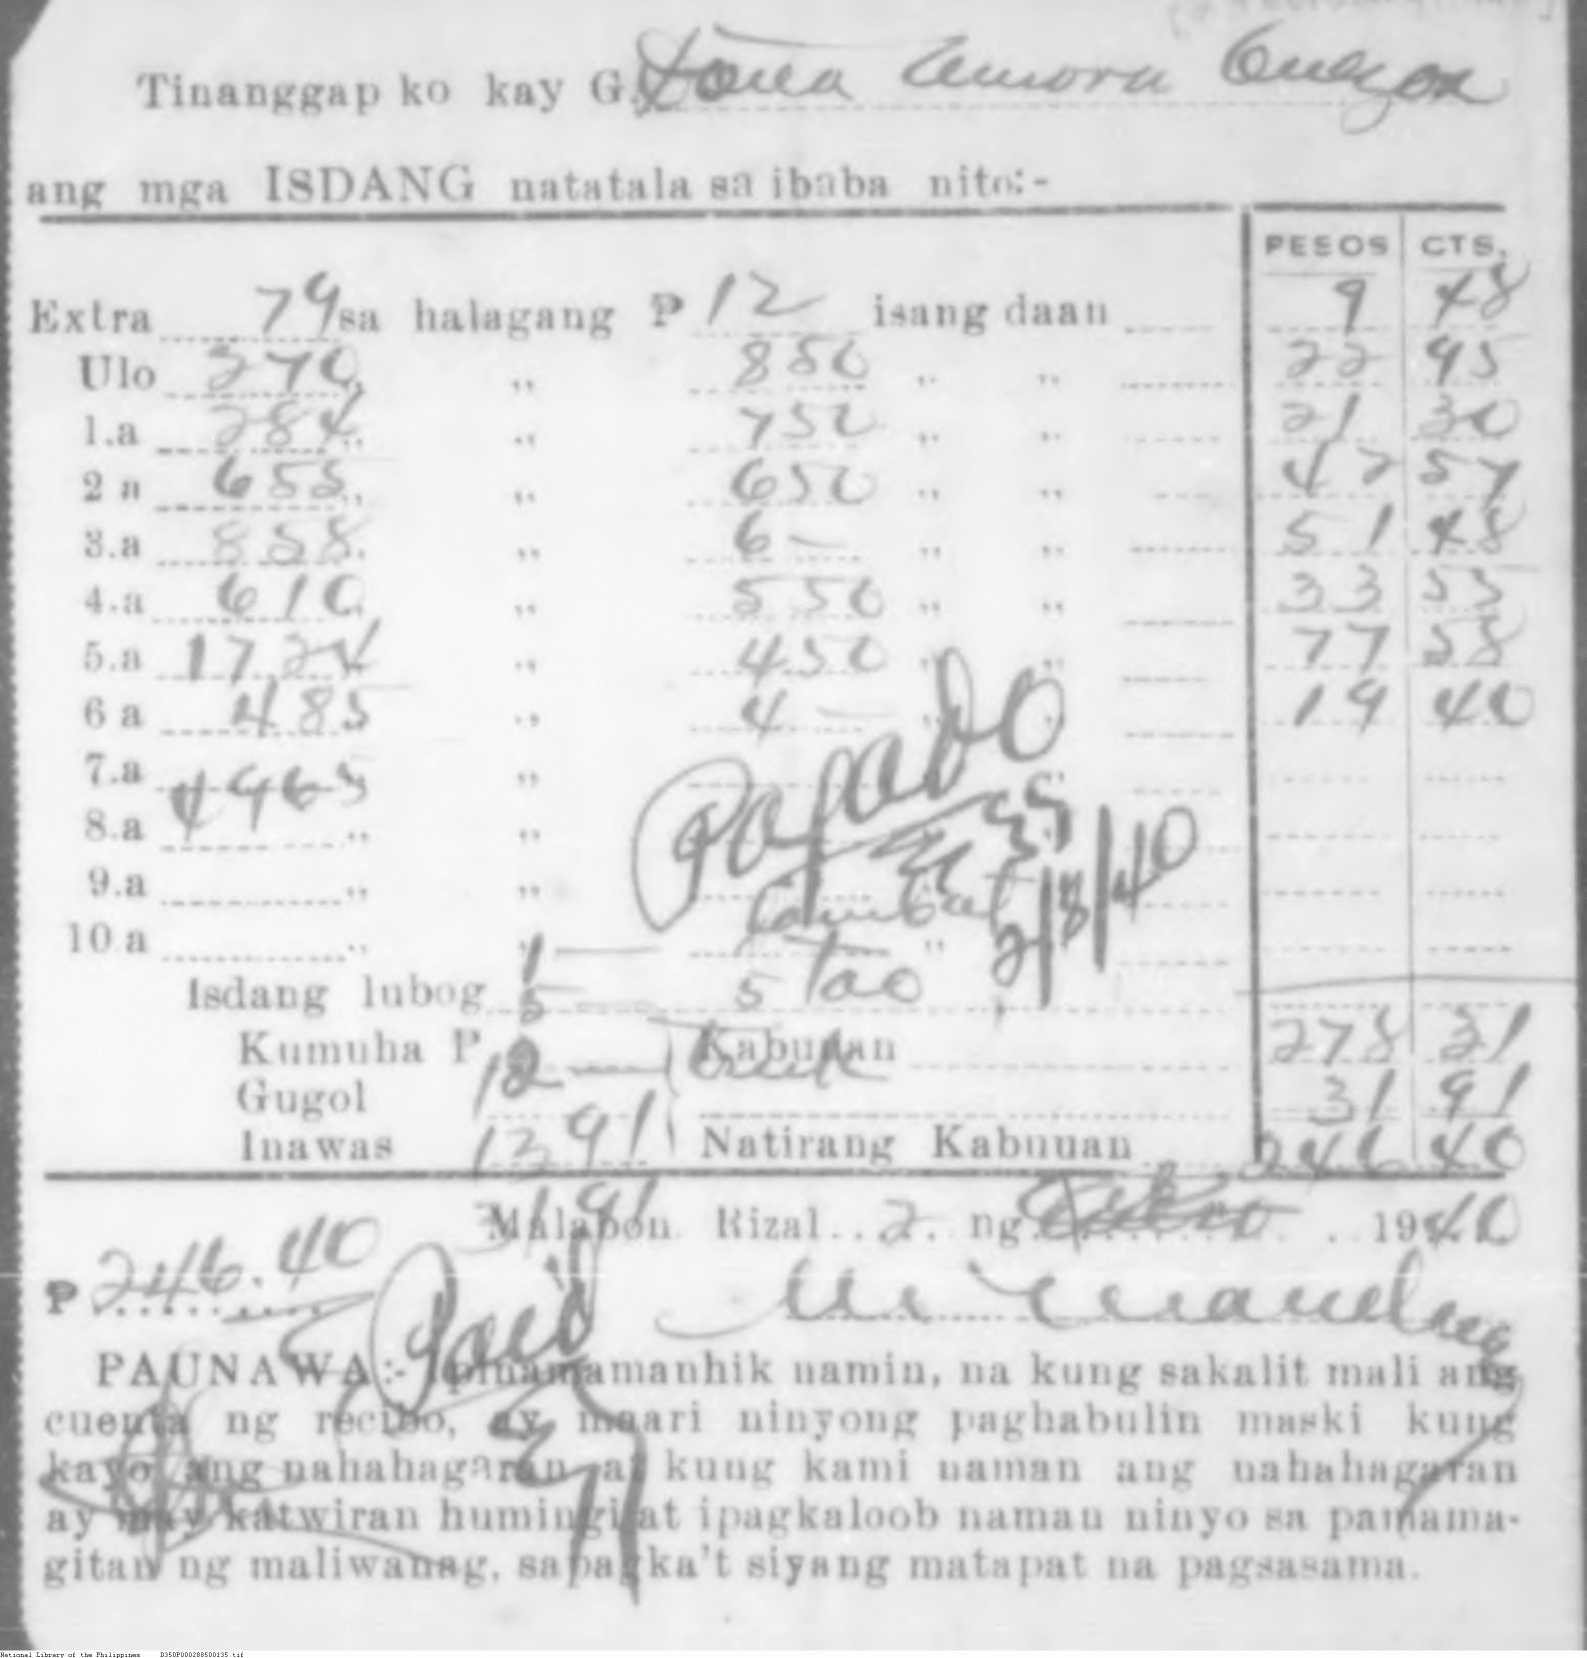 Tinanggap ko kay G. Dōnea Aurora Quezon
ang mga ISDANG natatala sa ibaba nito:-
PESOS CTS.
Extra 79 sa halagang ₱ 12 isang daan 9 48
Ulo 270 " 850 " " 22 95
1.a 284 " 750 " " 21 30
2 a 655 " 650 " " 42 57
3.a 858 " 6 — " " 51 48
4.a 610 " 550 " " 33 55
5.a 1724 " 450 " " 77 58
6 a 485 " 4 — " " 19 40
7.a 4965 "
8.a " "
Pagado
9.a " "
2/8/40
10 a " " 1 — "
Isdang lubog 5 — 5 Tao
Kumuha P 12 — Kabuuan 278 31
Gugol 31 91
Inawas 1391 Natirang Kabuuan 246 40
3191
Malabon Rizal.. 2. ng 1940
₱ 246.40
Paid
PAUNAWA:- Ipinamamanhik namin, na kung sakalit mali ang
cuenta ng recibo, ay maari ninyong paghabulin maski kung
kayo ang nahahagaran at kung kami naman ang nahahagaran
ay may katwiran humingi at ipagkaloob naman ninyo sa pamama-
gitan ng maliwanag, sapagka't siyang matapat na pagsasama.
National Library of the Philippines D350P000288500135.tif